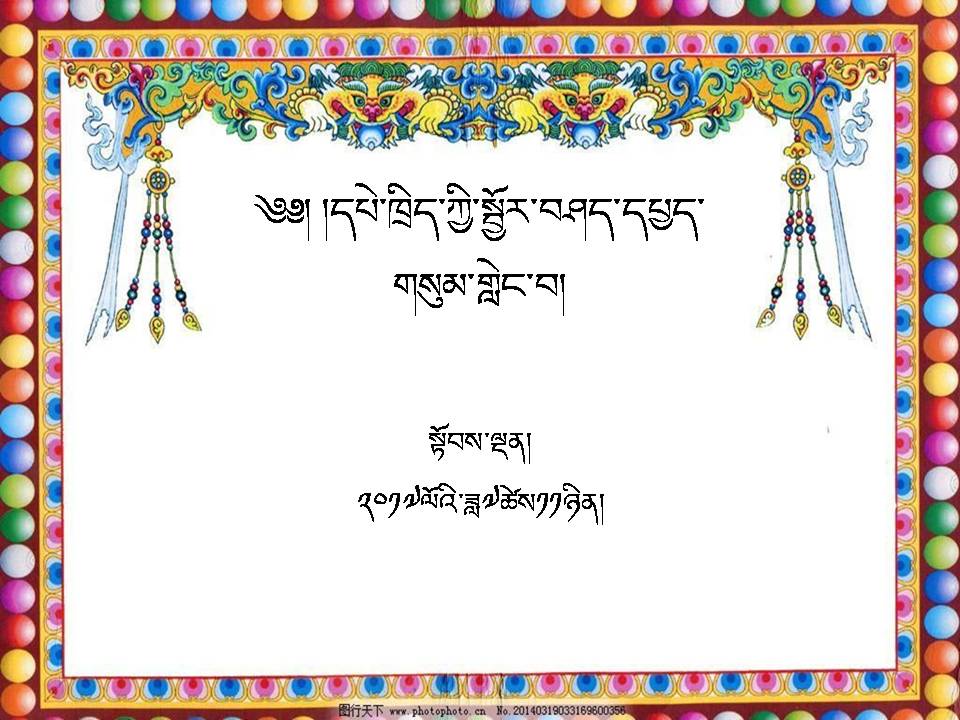 ༄༅། །དཔེ་ཁྲིད་ཀྱི་སྦྱོར་བཤད་དཔྱད་
གསུམ་གླེང་བ།
སྟོབས་ལྡན།
༢༠༡༧ལོའི་ཟླ༧ཚེས༡༡ཉིན།
图行天下 www.photophoto.cn No.20140319033169600356